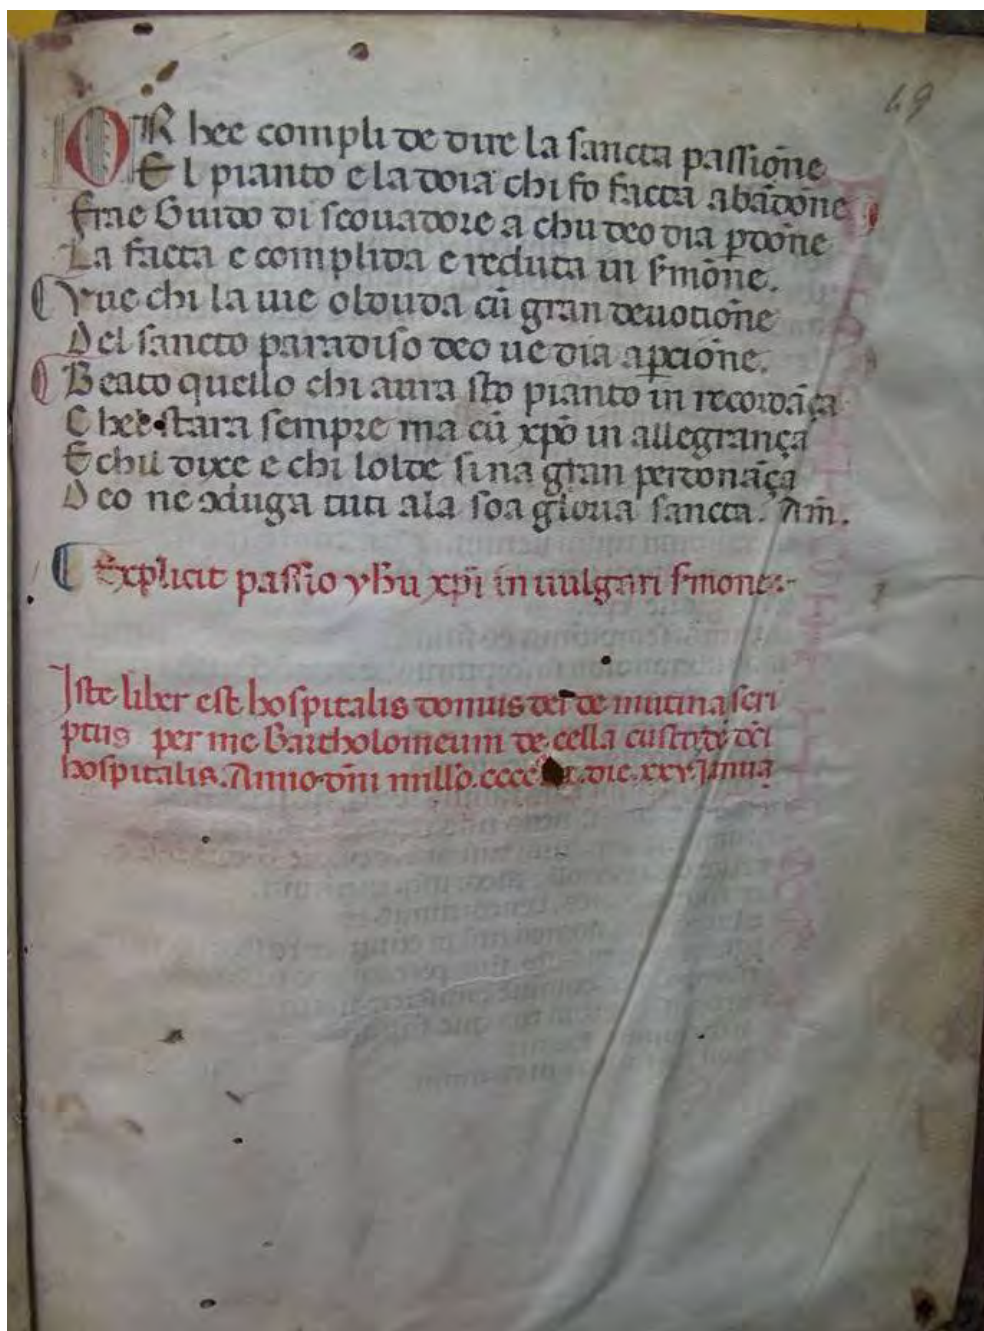 69
OR hee compli de dire la sancta passiõne
E l pianto e la doia chi fo facta abãdõne
Frae Guido di scouadore a chu deo dia pdõne
La facta e complida e reduta in s̾mõne.
vue chi la uie olduda cũ gran deuotiõne
Del sancto paradiso deo ue dia apciõne.
Beato quello chi aura sto pianto in recordãça
Chee stara sempre ma cũ xp̃o in allegrança
E chil dixe e chi lolde si na gran perdonãça
Deo ne ɔduga tuti ala soa gloria sancta. Am̃.
Explicit passio yhu xp̃i in uulgari s̾mone
Iste liber est hospitalis domus dei de mutina scri
ptus per me Bartholomeum de cella custode dc̃i
hospitalis. Anno dñi millo. die. xxv. Januã